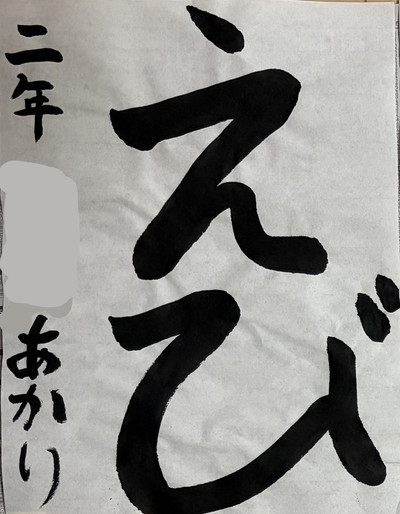 えび
二年
あかり